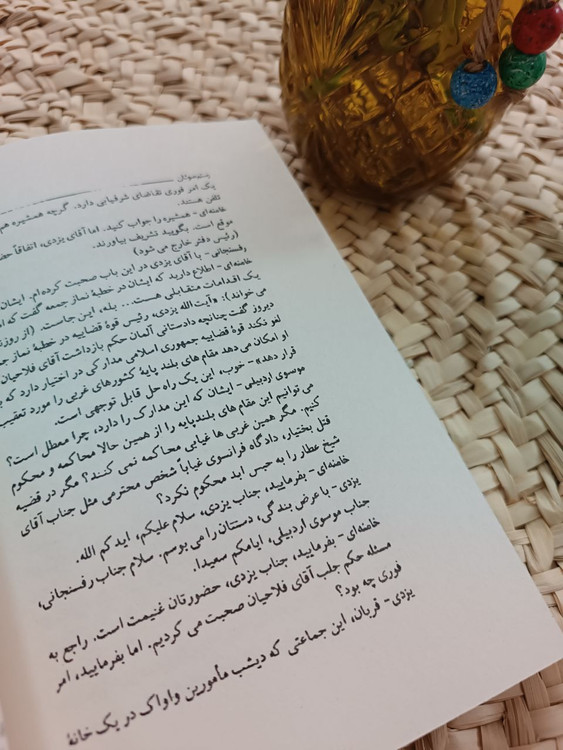 یک امر فوری تقاضای شرفیابی دارد. گرچه همشیره هم
تلفن هستند.
خامنه‌ای - همشیره را جواب کنید. اما آقای یزدی، اتفاقاً
موقع است. بگویید تشریف بیاورند.
(رئیس دفتر خارج می شود)
رفسنجانی - با آقای یزدی در این باب صحبت کرده‌ام. ایشان
خامنه‌ای - اطلاع دارید که ایشان در خطبهٔ نماز جمعه گفت که
یک اقدامات متقابلی هست... بله، این جاست. (از
می خواند): «آیت الله یزدی، رئیس قوهٔ قضاییه در خطبهٔ نماز
دیروز گفت چنانچه دادستانی آلمان حکم بازداشت آقای فلاحیان
لغو نکند قوهٔ قضاییه جمهوری اسلامی مدارکی در اختیار دارد که
او امکان می دهد مقام های بلند پایهٔ کشورهای غربی را مورد تعقیب
قرار دهد» - خوب، این یک راه حل قابل توجهی است.
موسوی اردبیلی - ایشان که این مدارک را دارد، چرا معطل است؟
می توانیم این مقام های بلندپایه را از همین حالا محاکمه و محکوم
کنیم. مگر همین غربی ها غیابی محاکمه نمی کنند؟ مگر در قضیه
قتل بختیار، دادگاه فرانسوی غیاباً شخص محترمی مثل جناب آقای
شیخ عطار را به حبس ابد محکوم نکرد؟
خامنه‌ای - بفرمایید، جناب یزدی، سلام علیکم، اید کم الله.
یزدی - با عرض بندگی، دستتان را می بوسم. سلام جناب رفسنجانی،
جناب موسوی اردبیلی، ایامکم سعیدا.
خامنه‌ای - بفرمایید، جناب یزدی، حضورتان غنیمت است. راجع به
مسئله حکم جلب آقای فلاحیان صحبت می کردیم. اما بفرمایید، امر
فوری چه بود؟
یزدی - قربان، این جماعتی که دیشب مأمورین واواک در یک خانهٔ